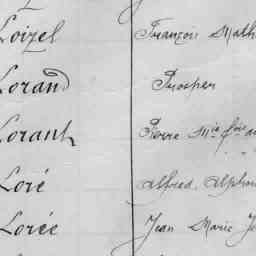 Loizel François Math
Lorand Prosper
Lorant Pierre Mie
Loré Alfred Alphon
Lorée Jean Marie Jo